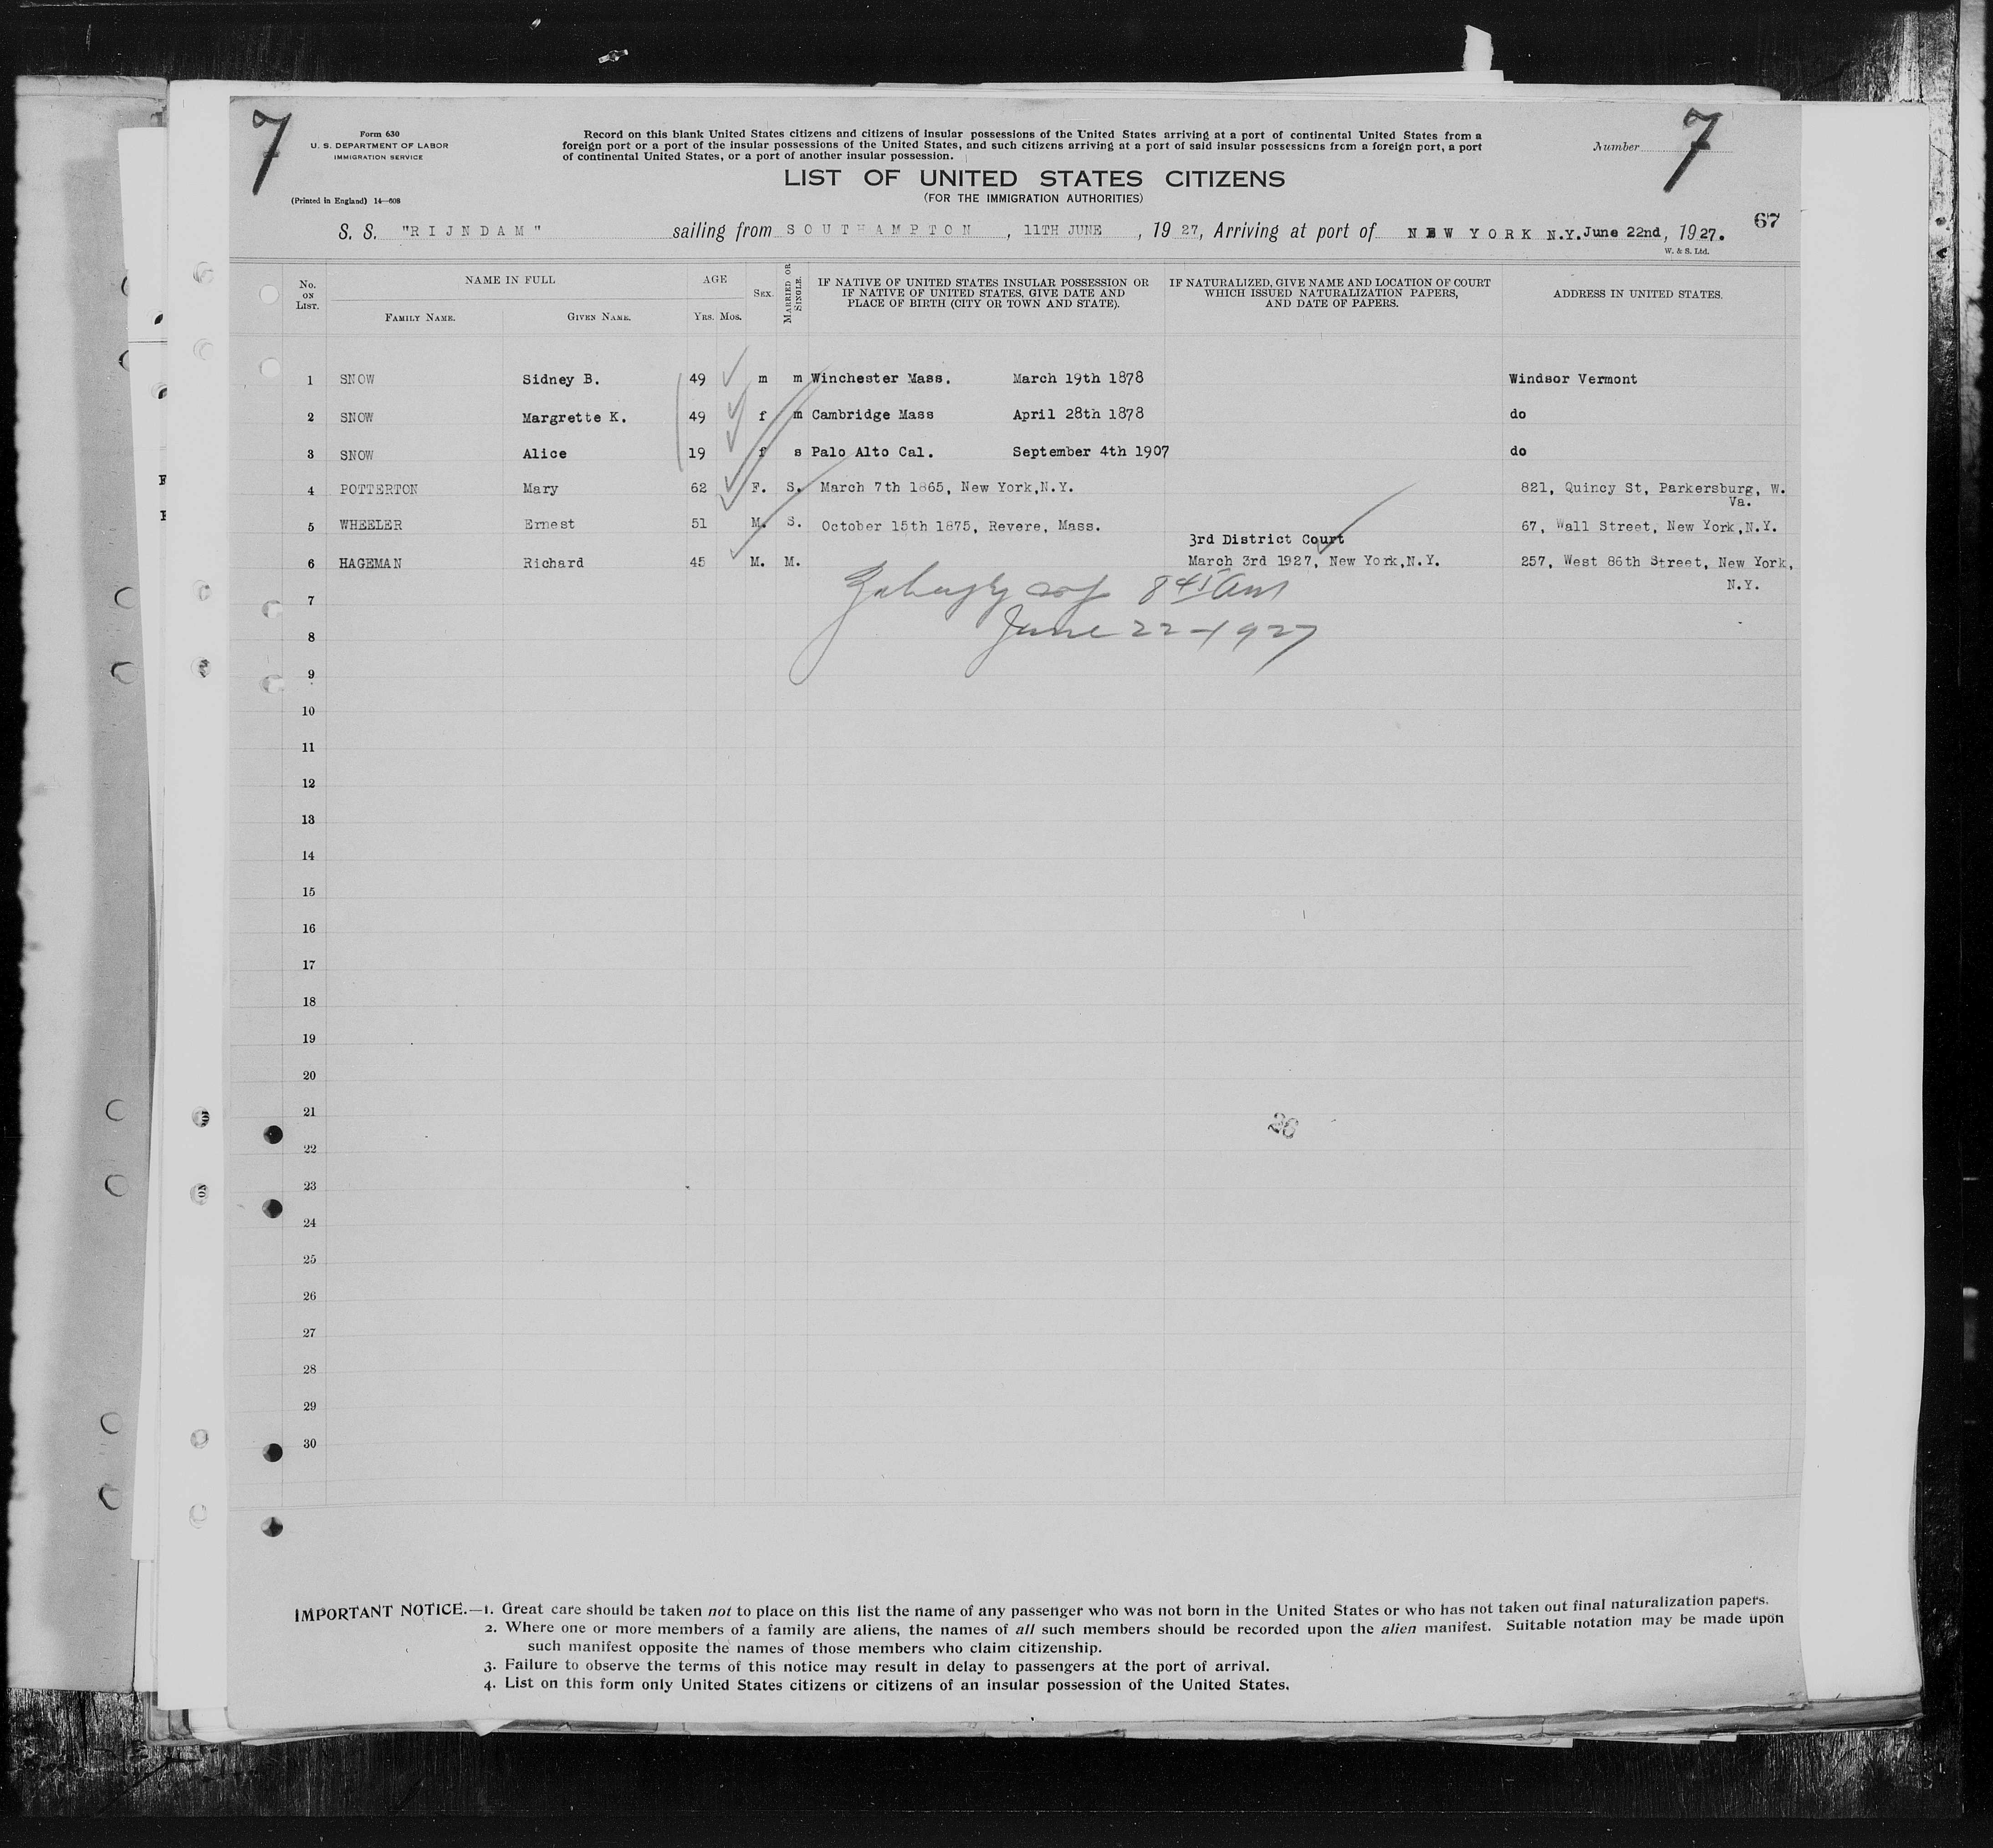 7
Form 630
U. S. DEPARTMENT OF LABOR
IMMIGRATION SERVICE
(Printed in England) 14—608
Record on this blank United States citizens and citizens of insular possessions of the United States arriving at a port of continental United States from a
foreign port or a port of the insular possessions of the United States, and such citizens arriving at a port of said insular possessions from a foreign port, a port
of continental United States, or a port of another insular possession.
Number 7
LIST OF UNITED STATES CITIZENS
(FOR THE IMMIGRATION AUTHORITIES)
67
S. S. "RIJNDAM" sailing from SOUTHAMPTON, 11TH JUNE, 1927, Arriving at port of NEW YORK N.Y. June 22nd, 1927.
W. & S. Ltd.
No. ON LIST. NAME IN FULL FAMILY NAME. GIVEN NAME. AGE YRS. MOS. SEX. MARRIED OR SINGLE. IF NATIVE OF UNITED STATES INSULAR POSSESSION OR IF NATIVE OF UNITED STATES, GIVE DATE AND PLACE OF BIRTH (CITY OR TOWN AND STATE). IF NATURALIZED, GIVE NAME AND LOCATION OF COURT WHICH ISSUED NATURALIZATION PAPERS, AND DATE OF PAPERS. ADDRESS IN UNITED STATES.
1 SNOW Sidney B. 49 m m Winchester Mass. March 19th 1878 Windsor Vermont
2 SNOW Margrette K. 49 f m Cambridge Mass April 28th 1878 do
3 SNOW Alice 19 f s Palo Alto Cal. September 4th 1907 do
4 POTTERTON Mary 62 F. S. March 7th 1865, New York,N.Y. 821, Quincy St, Parkersburg, W.
Va.
5 WHEELER Ernest 51 M. S. October 15th 1875, Revere, Mass. 67, Wall Street, New York,N.Y.
3rd District Court
6 HAGEMAN Richard 45 M. M. March 3rd 1927, New York,N.Y. 257, West 86th Street, New York,
N.Y.
7
June 22-1927
8
9
10
11
12
13
14
15
16
17
18
19
20
21
26
22
23
24
25
26
27
28
29
30
IMPORTANT NOTICE.—1. Great care should be taken not to place on this list the name of any passenger who was not born in the United States or who has not taken out final naturalization papers.
2. Where one or more members of a family are aliens, the names of all such members should be recorded upon the alien manifest. Suitable notation may be made upon
such manifest opposite the names of those members who claim citizenship.
3. Failure to observe the terms of this notice may result in delay to passengers at the port of arrival.
4. List on this form only United States citizens or citizens of an insular possession of the United States.